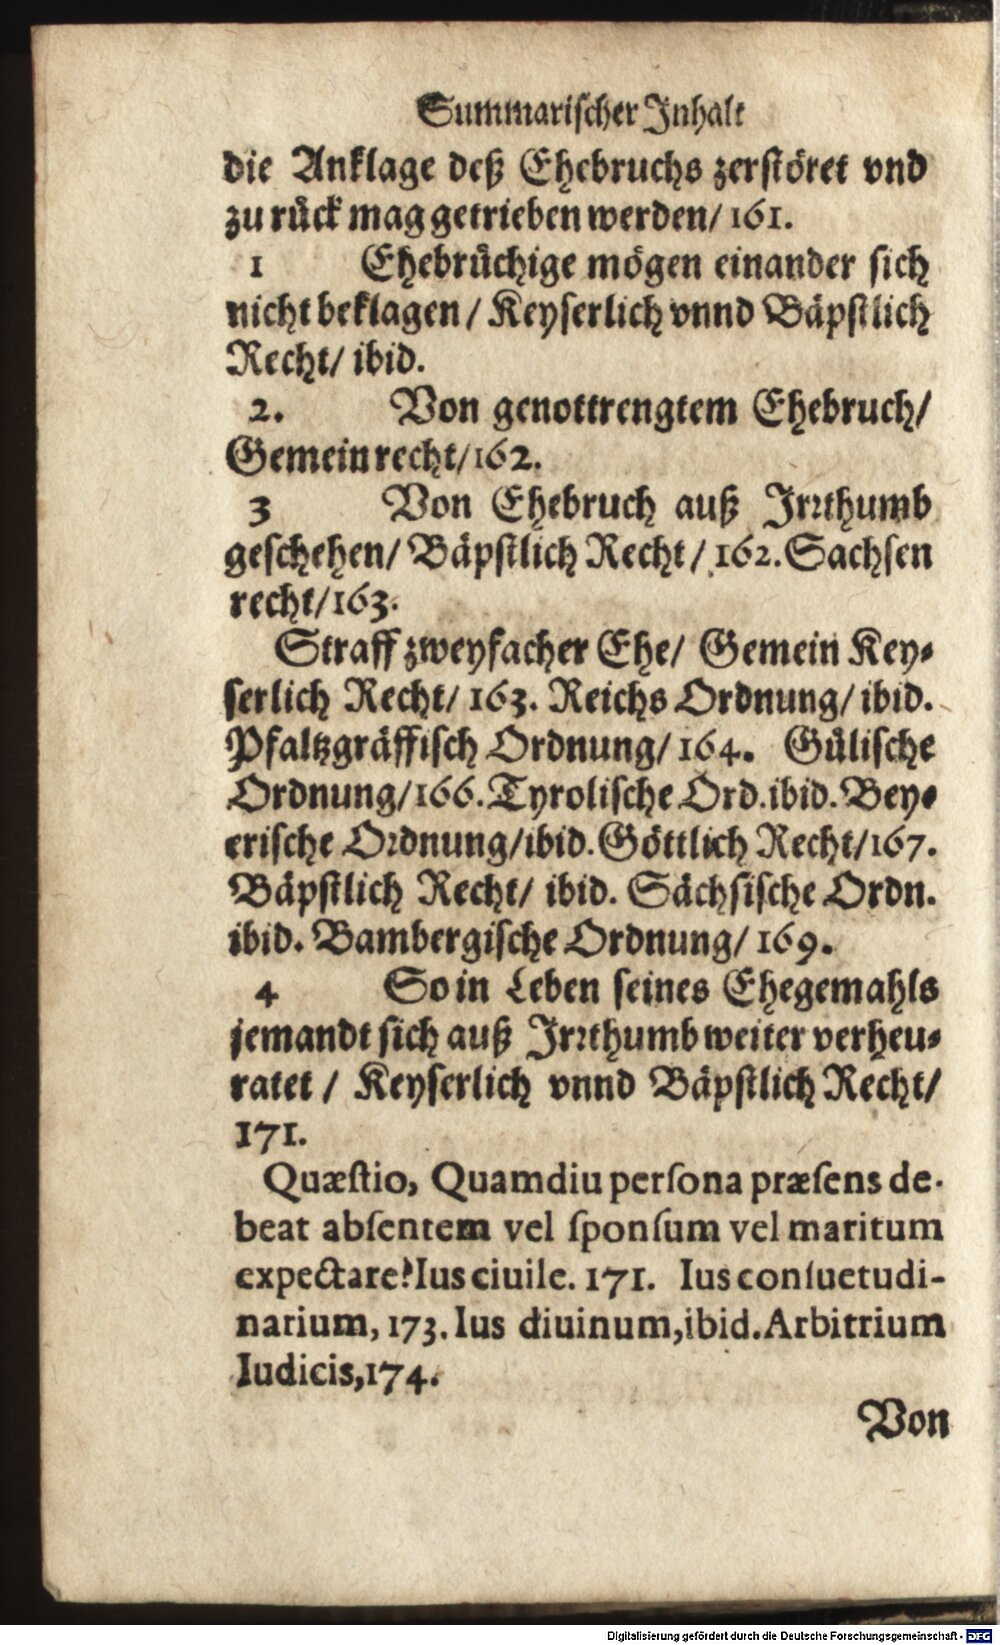 Summarischer Inhalt
die Anklage deß Ehebruchs zerstöret vnd
zu rück mag getrieben werden/ 161.
1 Ehebrüchige mögen einander sich
nicht beklagen / Keyserlich vnnd Bäpstlich
Recht/ ibid.
2. Von genottrengtem Ehebruch/
Gemein recht/ 162.
3 Von Ehebruch auß Irrthumb
geschehen/ Bäpstlich Recht / 162. Sachsen
recht/ 163.
Straff zweyfacher Ehe/ Gemein Key-
serlich Recht/ 163. Reichs Ordnung/ ibid.
Pfaltzgräffisch Ordnung/ 164. Gülische
Ordnung/ 166. Tyrolische Ord. ibid. Bey-
erische Ordnung/ ibid. Göttlich Recht/ 167.
Bäpstlich Recht/ ibid. Sächsische Ordn.
ibid. Bambergische Ordnung/ 169.
4 So in Leben seines Ehegemahls
jemandt sich auß Irrthumb weiter verheu-
ratet / Keyserlich vnnd Bäpstlich Recht/
171.
Quæstio, Quamdiu persona præsens de-
beat absentem vel sponsum vel maritum
expectare? Ius ciuile. 171. Ius consuetudi-
narium, 173. Ius diuinum, ibid. Arbitrium
Iudicis, 174.
Von
Digitalisierung gefördert durch die Deutsche Forschungsgemeinschaft - DFG